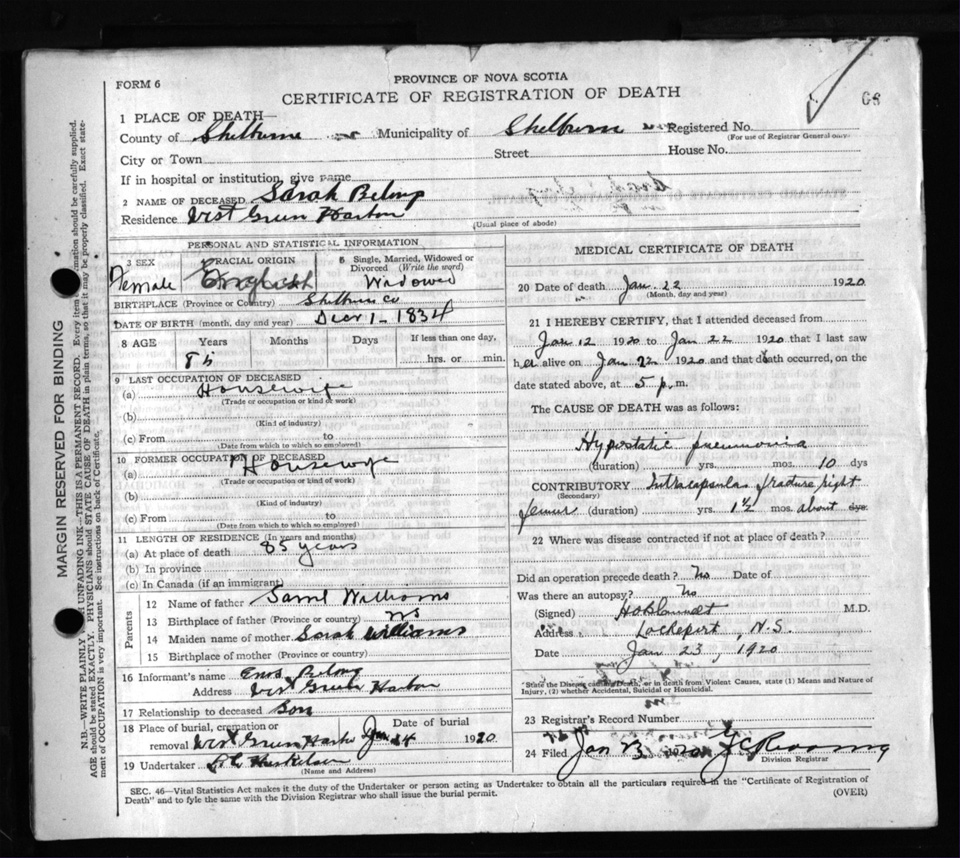 FORM 6
PROVINCE OF NOVA SCOTIA
CERTIFICATE OF REGISTRATION OF DEATH
68
1 PLACE OF DEATH—
County of Shelburne Municipality of Shelburne Registered No.
(For use of Registrar General only)
City or Town Street House No.
If in hospital or institution, give name
2 NAME OF DECEASED Sarah
Residence West Green Harbor
(Usual place of abode)
PERSONAL AND STATISTICAL INFORMATION
3 SEX Female
RACIAL ORIGIN English
5 Single, Married, Widowed or Divorced (Write the word) Widowed
BIRTHPLACE (Province or Country) Shelburn Co
DATE OF BIRTH (month, day and year) 1 - 1834
8 AGE Years Months Days If less than one day,
hrs. or min.
9 LAST OCCUPATION OF DECEASED
(a) Housewife
(Trade or occupation or kind of work)
(b)
(Kind of industry)
(c) From to
(Date from which to which so employed)
10 FORMER OCCUPATION OF DECEASED
(a) Housewife
(Trade or occupation or kind of work)
(b)
(Kind of industry)
(c) From to
(Date from which to which so employed)
11 LENGTH OF RESIDENCE (In years and months)
(a) At place of death 85 years
(b) In province
(c) In Canada (if an immigrant)
Parents
12 Name of father Saml Williams
13 Birthplace of father (Province or country) N S
14 Maiden name of mother Sarah Williams
15 Birthplace of mother (Province or country)
16 Informant's name
Address West Green Harbor
17 Relationship to deceased Son
18 Place of burial, cremation or removal West Green Harbor Date of burial Jan 24 1920
19 Undertaker
(Name and Address)
MEDICAL CERTIFICATE OF DEATH
20 Date of death Jan. 22 1920
(Month, day and year)
21 I HEREBY CERTIFY, that I attended deceased from
Jan 12 1920 to Jan 22 1920 that I last saw
her alive on Jan 22 1920 and that death occurred, on the
date stated above, at 5 p. m.
The CAUSE OF DEATH was as follows:
Hypostatic pneumonia
(duration) yrs. mos. 10 dys
CONTRIBUTORY Intracapsular fracture right
(Secondary)
femur (duration) yrs. 1½ mos. about dys.
22 Where was disease contracted if not at place of death?
Did an operation precede death? No Date of
Was there an autopsy? No
(Signed) M.D.
Address Lockeport, N.S.
Date Jan 23, 1920
*State the Disease causing Death, or in death from Violent Causes, state (1) Means and Nature of
Injury, (2) whether Accidental, Suicidal or Homicidal.
23 Registrar's Record Number
24 Filed Jan
Division Registrar
SEC. 46—Vital Statistics Act makes it the duty of the Undertaker or person acting as Undertaker to obtain all the particulars required in the "Certificate of Registration of
Death" and to fyle the same with the Division Registrar who shall issue the burial permit.
(OVER)
MARGIN RESERVED FOR BINDING
N.B.—WRITE PLAINLY WITH UNFADING INK—THIS IS A PERMANENT RECORD. Every item of information should be carefully supplied.
AGE should be stated EXACTLY. PHYSICIANS should STATE CAUSE OF DEATH in plain terms, so that it may be properly classified. Exact state-
ment of OCCUPATION is very important. See instructions on back of Certificate.